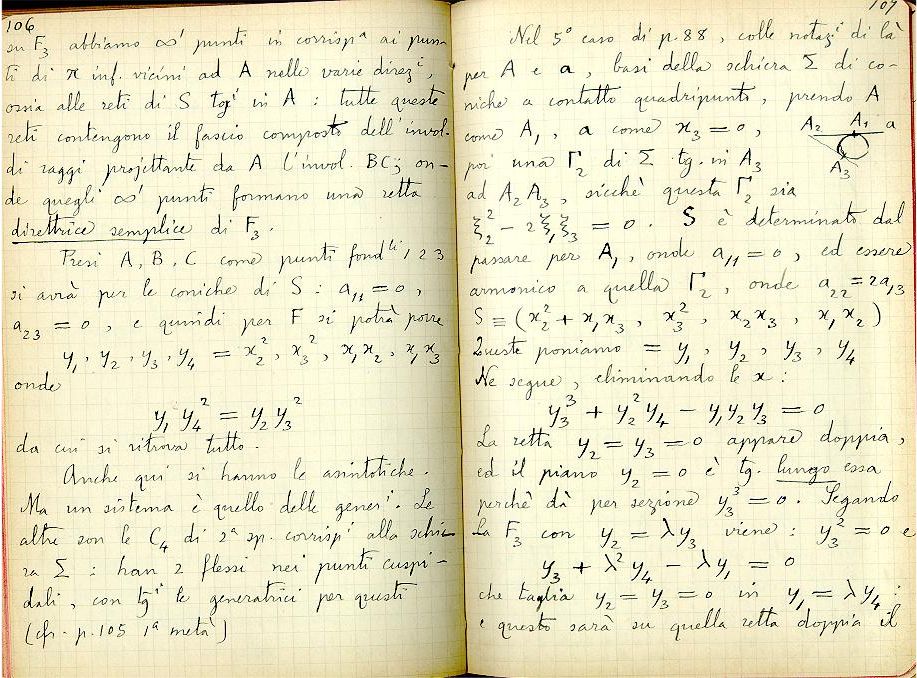 106
su F₃ abbiamo ∞¹ punti in corrispᵃ ai pun-
ti di π inf. vicini ad A nelle varie direzⁱ,
ossia alle reti di S tgⁱ in A : tutte queste
reti contengono il fascio composto dell'invol.
di raggi projttante da A l'invol. BC; on-
de quegli ∞¹ punti formano una retta
direttrice semplice di F₃.
Presi A, B, C come punti fondˡⁱ 1 2 3
si avrà per le coniche di S : a₁₁ = 0,
a₂₃ = 0, e quindi per F si potrà porre
y₁, y₂, y₃, y₄ = x₂², x₃², x₁x₂, x₁x₃
onde
y₁ y₄² = y₂ y₃²
da cui si ritrova tutto.
Anche qui si hanno le asintotiche.
Ma un sistema è quello delle generⁱ. Le
altre son le C₄ di 2ᵃ sp. corrispⁱ alla schie-
ra Σ : han 2 flessi nei punti cuspi-
dali, con tgⁱ le generatrici per questi
(cfr. p. 105 1ᵃ metà)
107
Nel 5º caso di p. 88, colle notazⁱ di là
per A e a, basi della schiera Σ di co-
niche a contatto quadripunto, prendo A
come A₁, a come x₃ = 0,
A₂ A₁ a
A₃
poi una Γ₂ di Σ tg. in A₃
ad A₂A₃, sicchè questa Γ₂ sia
ξ₂² − 2ξ₁ξ₃ = 0. S è determinato dal
passare per A₁, onde a₁₁ = 0, ed essere
armonico a quella Γ₂, onde a₂₂ = 2a₁₃
S ≡ (x₂² + x₁x₃, x₃², x₂x₃, x₁x₂)
Queste poniamo = y₁, y₂, y₃, y₄
Ne segue, eliminando le x :
y₃³ + y₂²y₄ − y₁y₂y₃ = 0
La retta y₂ = y₃ = 0 appare doppia,
ed il piano y₂ = 0 è tg. lungo essa
perchè dà per sezione y₃³ = 0. Segando
la F₃ con y₂ = λy₃ viene : y₃² = 0 e
y₃ + λ²y₄ − λy₁ = 0
che taglia y₂ = y₃ = 0 in y₁ = λy₄ :
e questo sarà su quella retta doppia il